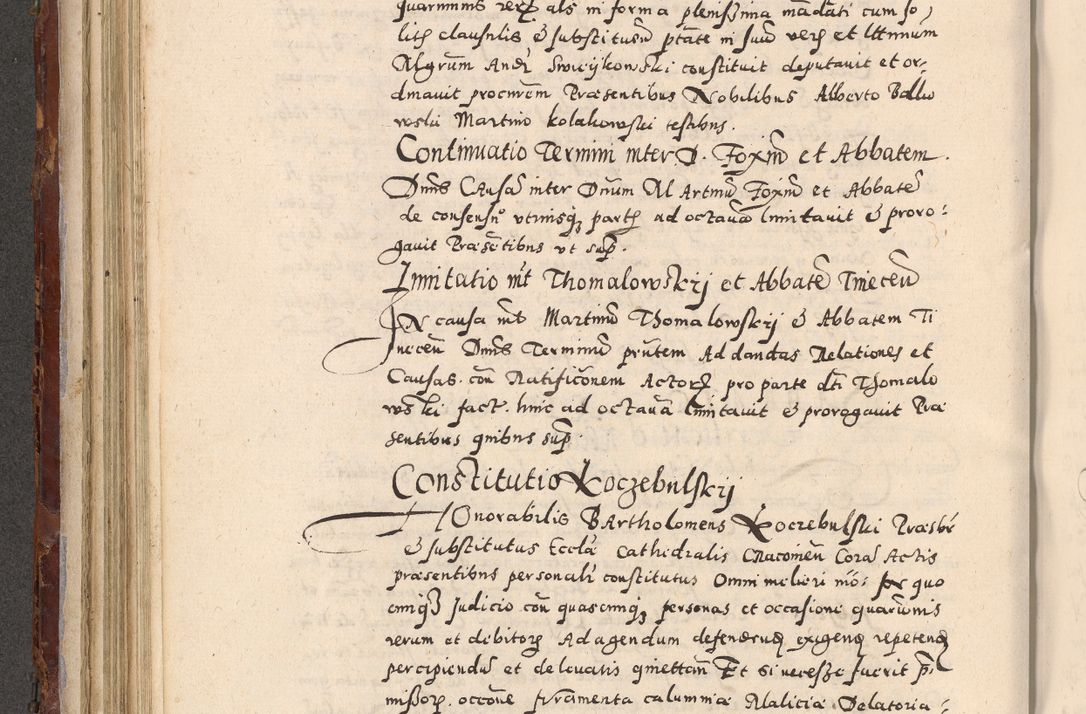 quarumvis rerꝝ als in forma plenissima mādati cum so,
litis clausulis & substituēn ptāte in suū verꝫ et lttimum
Mgrūm Andr Swieykowski constituit deputavit et or-
dinavit procurēm Præsentibus Nobilibus Alberto Ballio
wski Martino Kolakowski testibus.
Continuatio Termini inter D. Foxiū et Abbatem.
Dnūs Causā inter Dnūm MArtinū Foxiū et Abbatē
de consensu utriusqꝫ partis ad octavā limitavit & proro-
gavit Præsētibus ut sup.
Limitatio int Thomalowskij et Abbatē Tinecēn
IN causa int Martinū Thomalowskij & Abbatem Ti
necēn Dnūs Terminū prn̄tem Ad dandas Relationes et
Causas cōn Ratificōnem Actorꝝ pro parte dti Thomalo
wski fact. hinc ad octavā limitavit & prorogavit Præ
sentibus quibus sup.
Constitutio Koczebulskij
HOnorabilis BArtholomeus Koczebulski Præsbr
& substitutus Ecclæ Cathedralis Cracovien Corā Actis
præsentibus personalr constitutus Omni meliori mō: in quo
cunqꝫ Judicio cōn quascunqꝫ personas et occasione quarumvis
rerum et debitorꝫ Ad agendum defendendꝫ exigendꝫ repetendꝫ
percipiendū et de levatis quiettan Et si necesse fuerit p-
missorꝫ occōne Iuramenta calumniæ Maliciæ Delatoria-